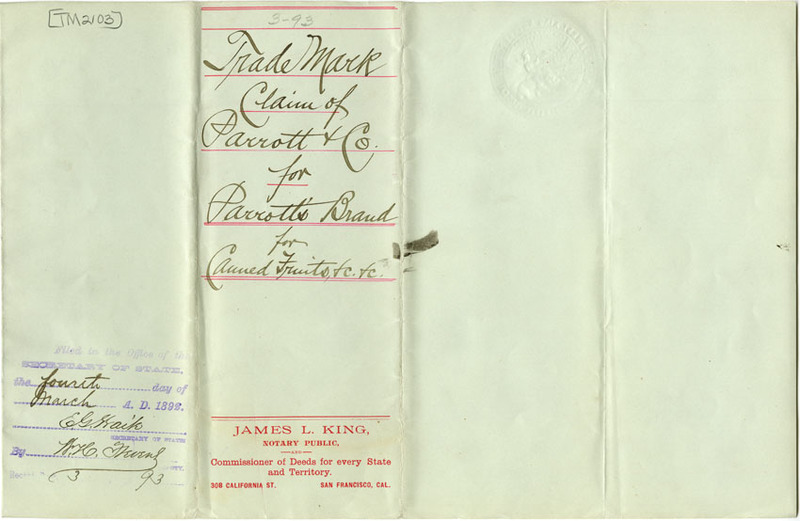 [TM2103]
3-93
Trade Mark
Claim of
Parrott & Co.
for
Parrott's Brand
for
Canned Fruits, &c. &c.
Filed in the Office of the
SECRETARY OF STATE,
the fourth day of
March A. D. 1892.
E G Waite
SECRETARY OF STATE
By W. H.
3 93
JAMES L. KING,
NOTARY PUBLIC,
AND
Commissioner of Deeds for every State
and Territory.
308 CALIFORNIA ST. SAN FRANCISCO, CAL.